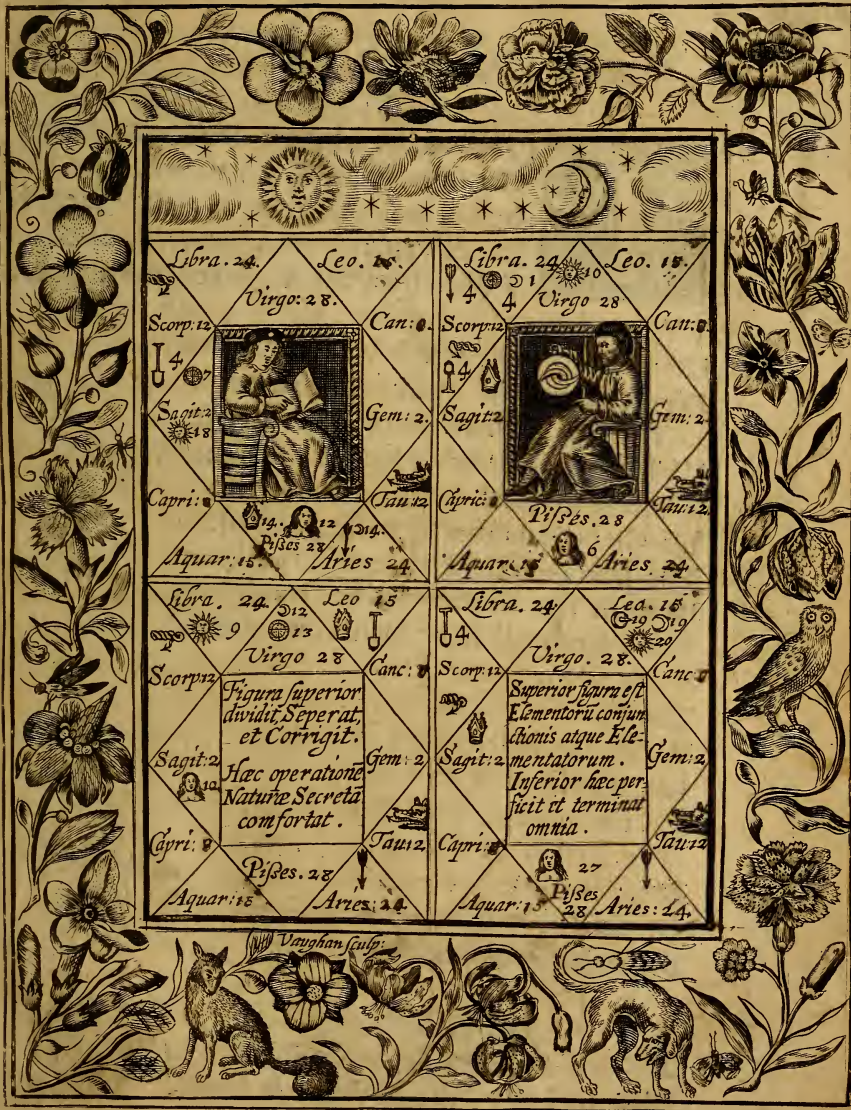 Libra. 24.
Leo. 15
Virgo: 28.
Scorp: 12
Can:
4
7
Sagit: 2
18
Gem: 2.
Capri:
Tau: 12
14. 12
☽14.
Pißes 28
Aquar: 15.
Aries 24
Libra. 24
10
Leo. 15
4
☽ 1
4
Virgo 28
Scorp: 12
Can:
4
Sagit: 2
Gem: 2
Capric:
Tau: 12.
Pißes. 28
6
Aquar: 15
Aries 24
Libra. 24.
☽12
Leo 15
9
13
Virgo 28
Scorp: 12
Canc:
Figura superior
dividit, Seperat,
et Corrigit.
Hæc operationē
Naturæ Secretā
comfortat.
Sagit: 2
10
Gem: 2
Capri:
Tau: 12
Pißes. 28
Aquar: 15
Aries: 24
Libra. 24
Leo. 15
19 ☽19
4
20
Virgo. 28.
Scorp: 12
Canc
Superior figura est
Elementorū conjun
ctionis atque Ele-
mentatorum.
Inferior hæc per-
ficit et terminat
omnia.
Sagit: 2
Gem: 2
Capri:
Tau: 12
27
Pißes
28
Aquar: 15
Aries: 24.
Vaughan sculp: